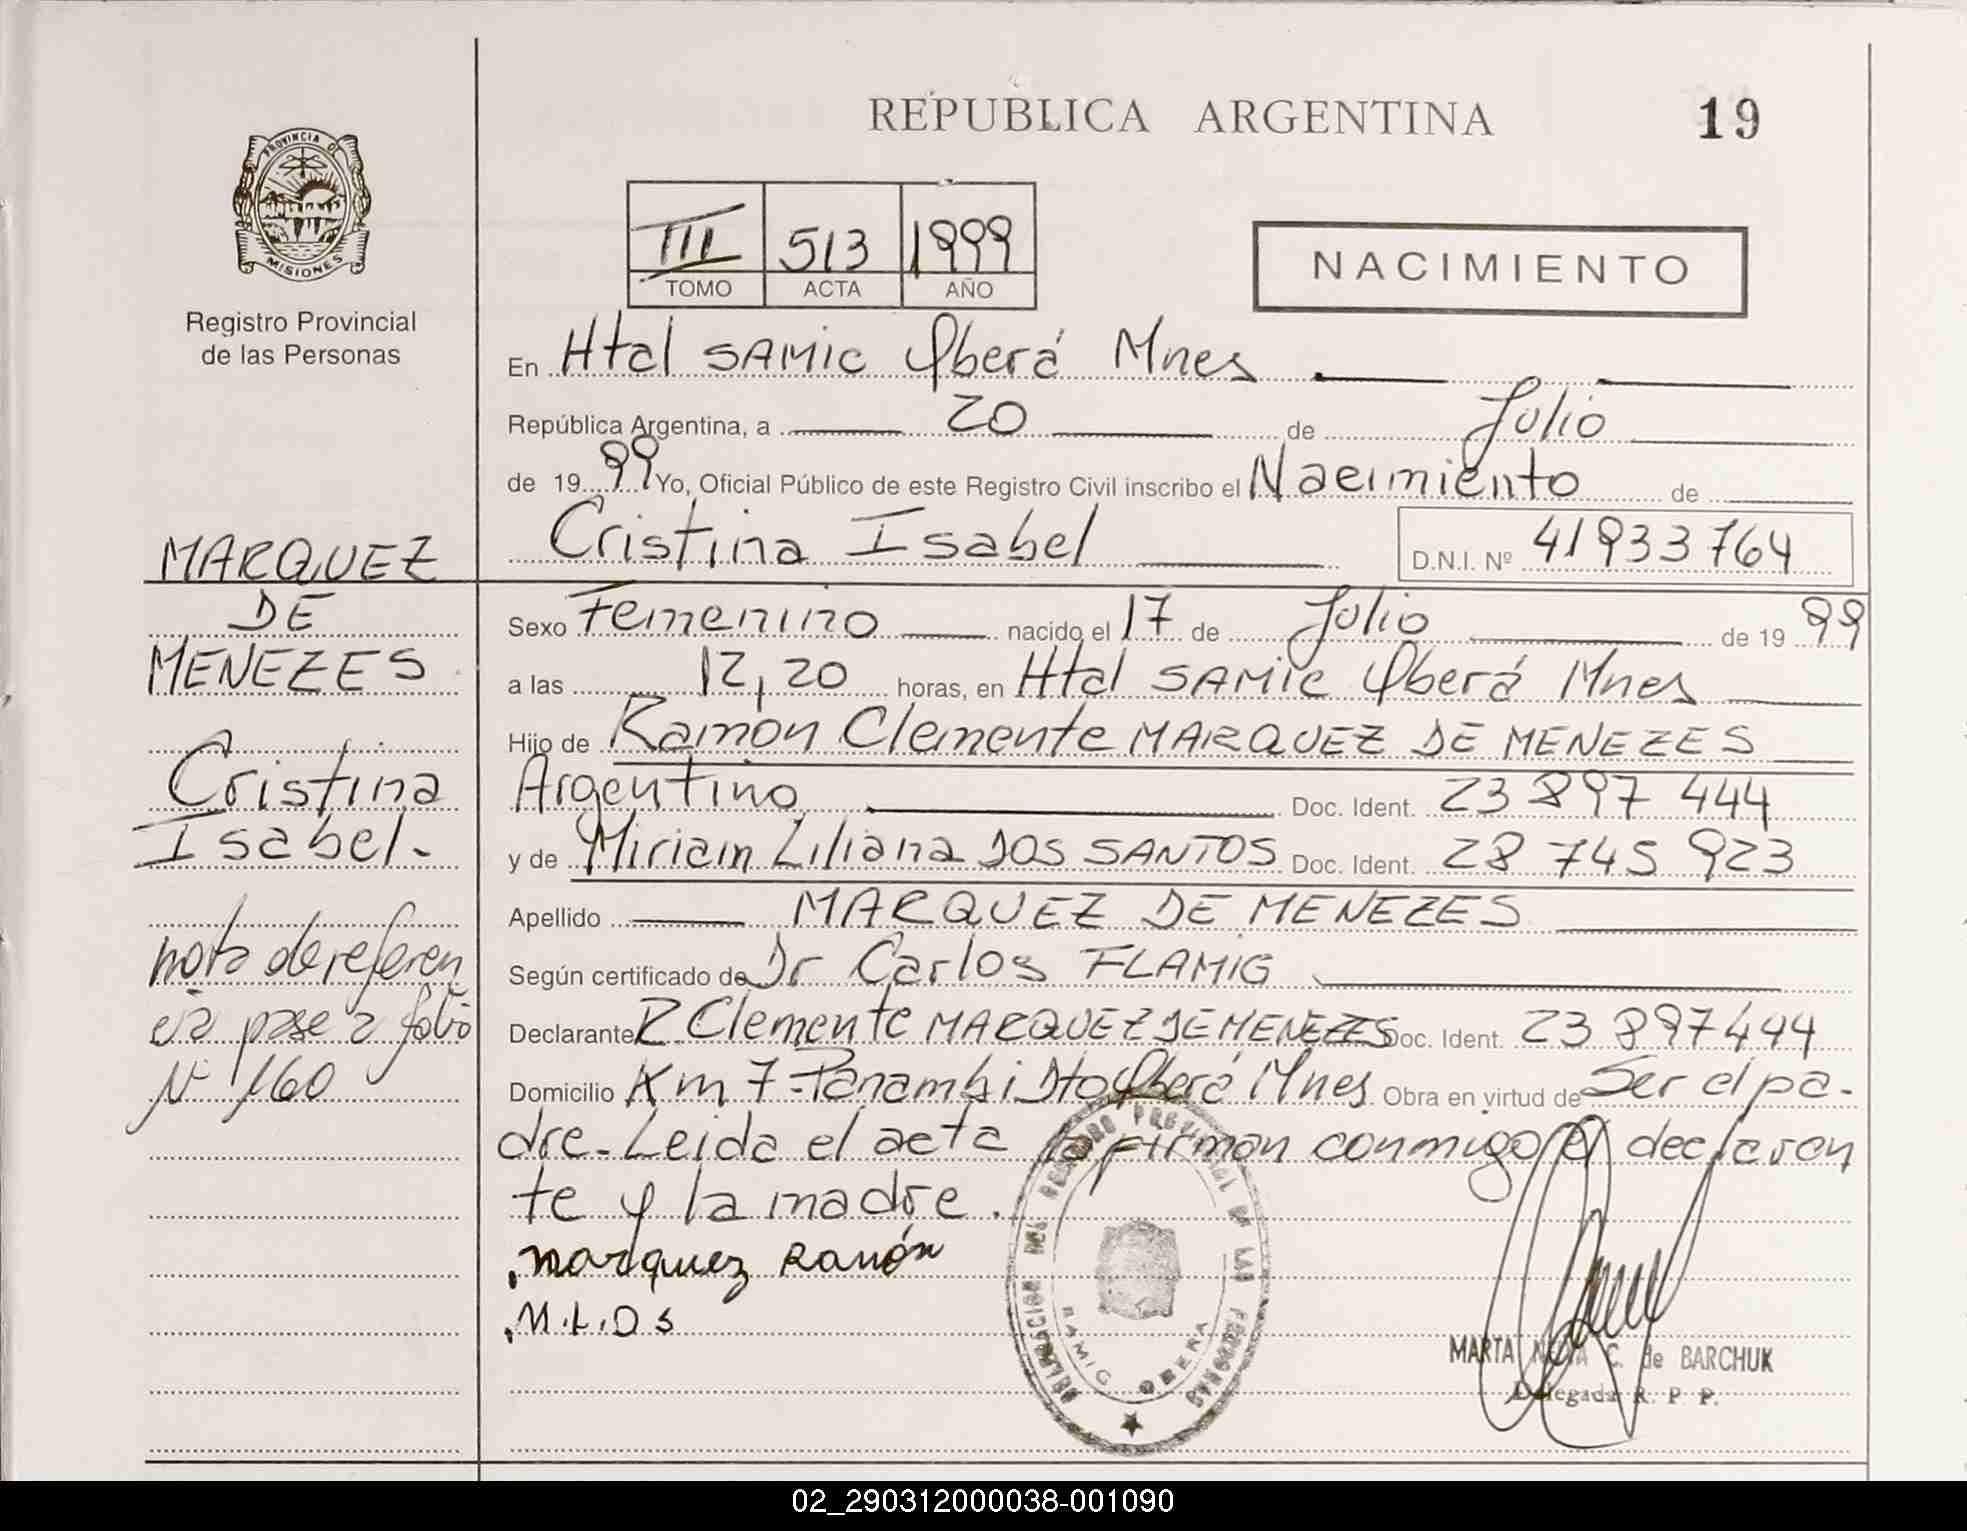 REPUBLICA ARGENTINA
19
PROVINCIA DE
MISIONES
Registro Provincial
de las Personas
III 513 1999
TOMO ACTA AÑO
NACIMIENTO
En Htal SAMIC Oberá Mnes
República Argentina, a 20 de Julio
de 1999 Yo, Oficial Público de este Registro Civil inscribo el Nacimiento de
Cristina Isabel D.N.I. Nº 41933764
MARQUEZ
DE
MENEZES
Cristina
Isabel.-
nota de referen
cia pase a folio
Nº 160
Sexo Femenino nacido el 17 de Julio de 1999
a las 12,20 horas, en Htal SAMIC Oberá Mnes
Hijo de Ramon Clemente MARQUEZ DE MENEZES
Argentino Doc. Ident. 23 897 444
y de Miriam Liliana DOS SANTOS Doc. Ident. 28 745 923
Apellido MARQUEZ DE MENEZES
Según certificado de Dr Carlos FLAMIG
Declarante R Clemente MARQUEZ DE MENEZES Doc. Ident. 23 897444
Domicilio Km 7 - Panambi Dto Oberá Mnes Obra en virtud de Ser el pa-
dre.- Leida el acta la firman conmigo el declaran
te y la madre.
marquez Ramón
M.L.D S
DELEGACION DEL REGISTRO PROVINCIAL DE LAS PERSONAS
SAMIG OBERA
MARTA C. de BARCHUK
Delegada R. P. P.
02_290312000038-001090